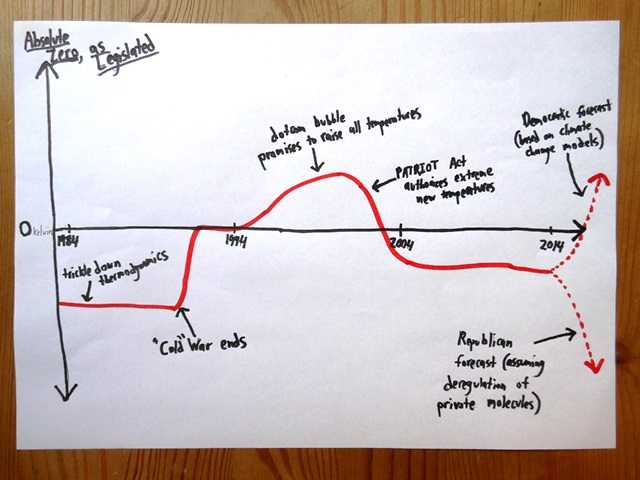 Absolute
Zero, as
Legislated
dotcom bubble
promises to raise all temperatures
PATRIOT Act
authorizes extreme
new temperatures
Democratic forecast
(based on climate
change models)
0 kelvin
1984
1994
2004
2014
trickle down
thermodynamics
"Cold" War ends
Republican
forecast (assuming
deregulation of
private molecules)